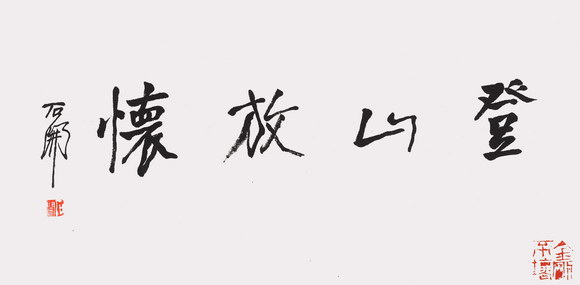 登山放懷
石開